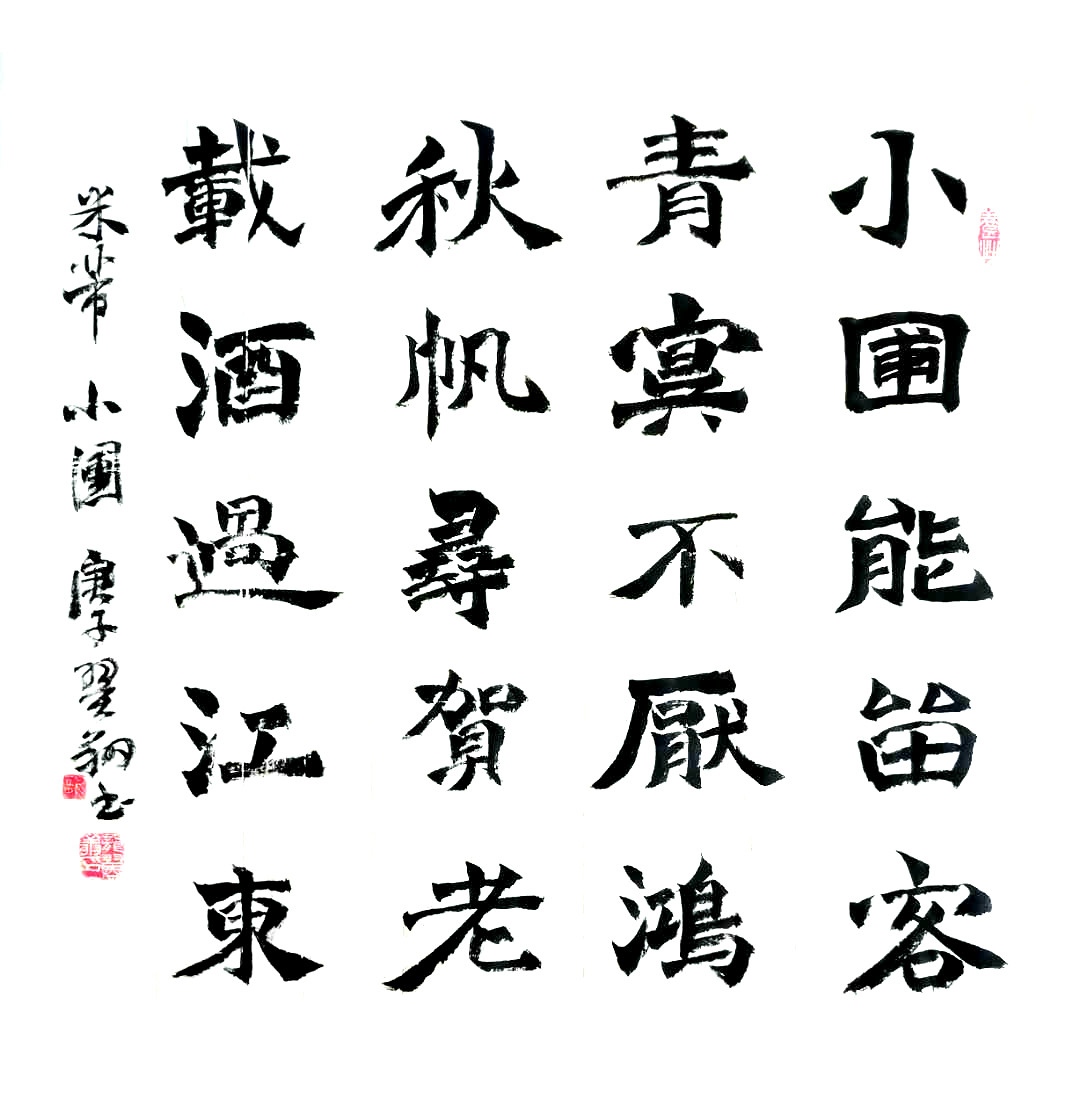 小圃能留客
青冥不厭鴻
秋帆尋賀老
載酒過江東
米芾 小圃 庚子 翔书